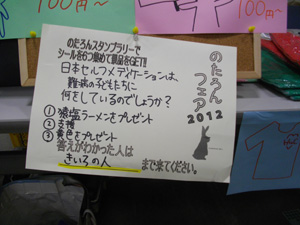 100円〜
100円〜
のたろんスタンプラリーで
シールを6つ集めて景品をGET!!
日本セルフメディケーションは、
難病の子どもたちに
何をしているのでしょうか?
① 猿塩ラーメンをプレゼント
② 支援
③ 黄色をプレゼント
答えがわかった人は
きいろの人
まで来てください。
のたろん
フェア
2012